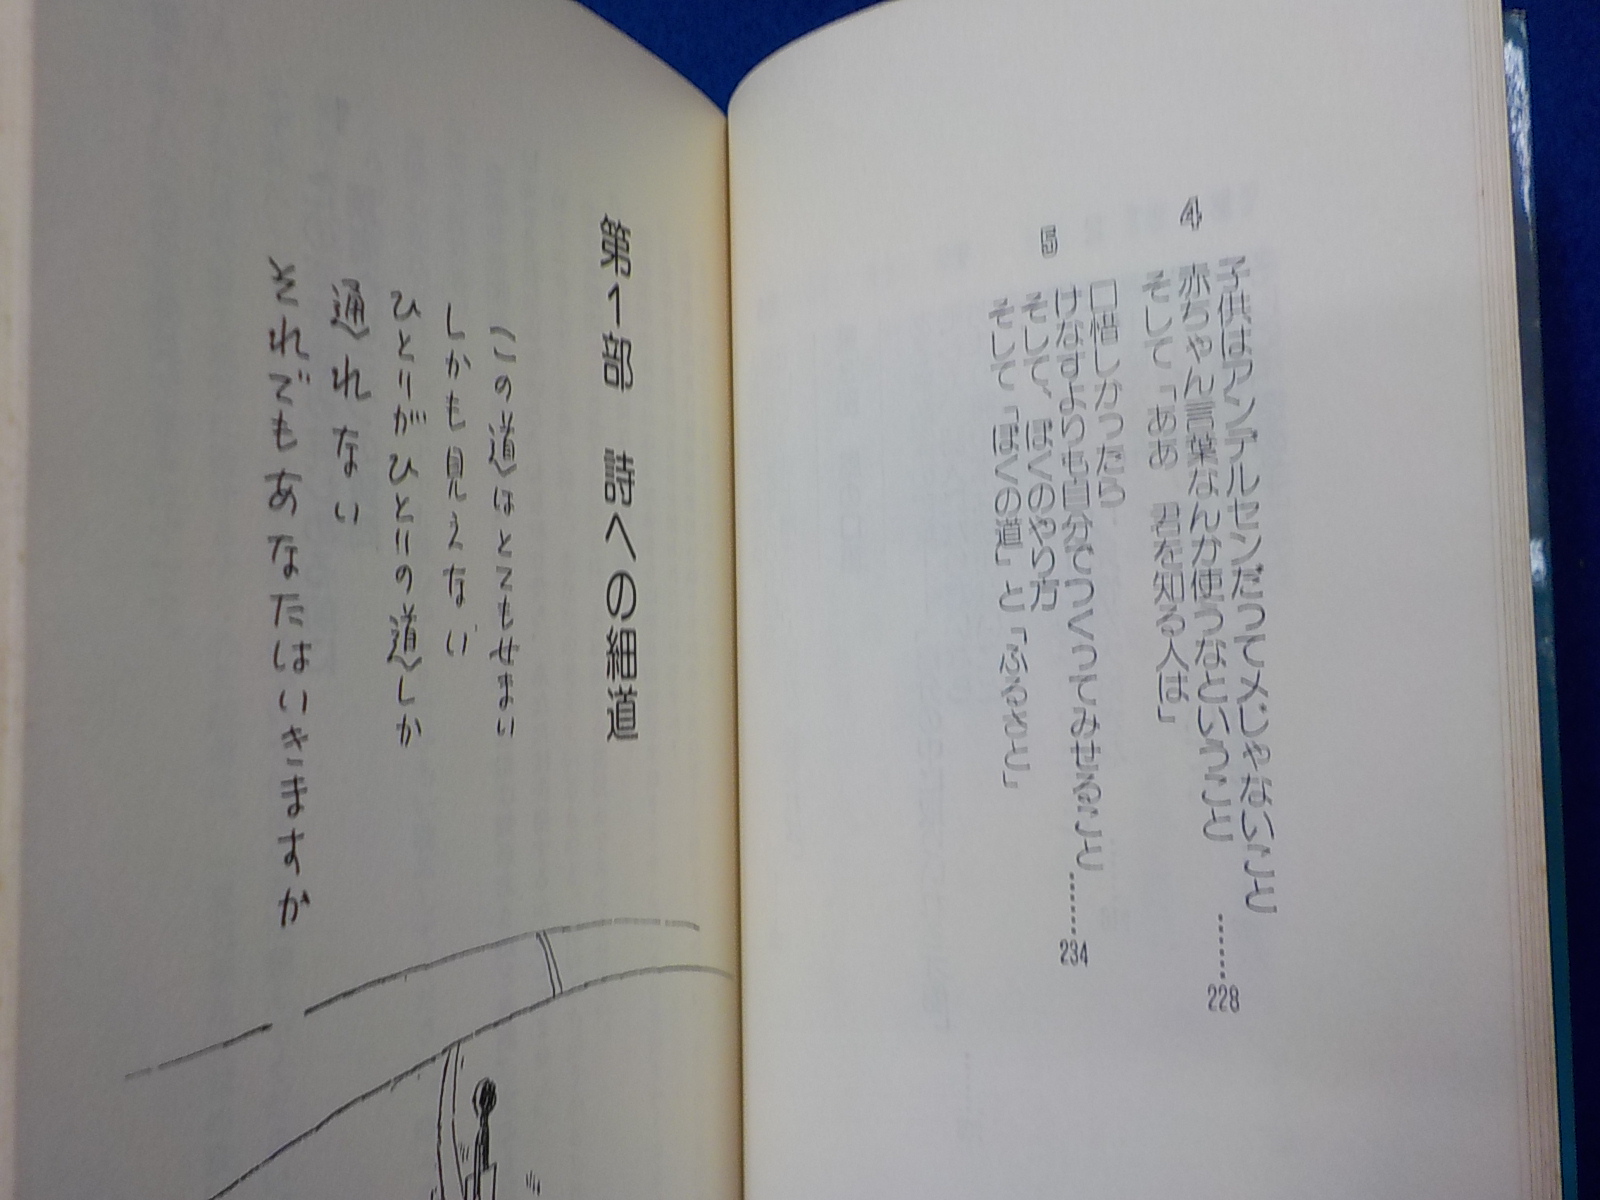 4
子供はアンデルセンだってメじゃないこと
赤ちゃん言葉なんか使うなということ ……228
そして「ああ 君を知る人は」
5
口惜しかったら
けなすよりも自分でつくってみせること ……234
そして、ぼくのやり方
そして「ぼくの道」と「ふるさと」
第1部 詩への細道
この道はとてもせまい
しかも見えない
ひとりがひとりの道しか
通れない
それでもあなたはいきますか